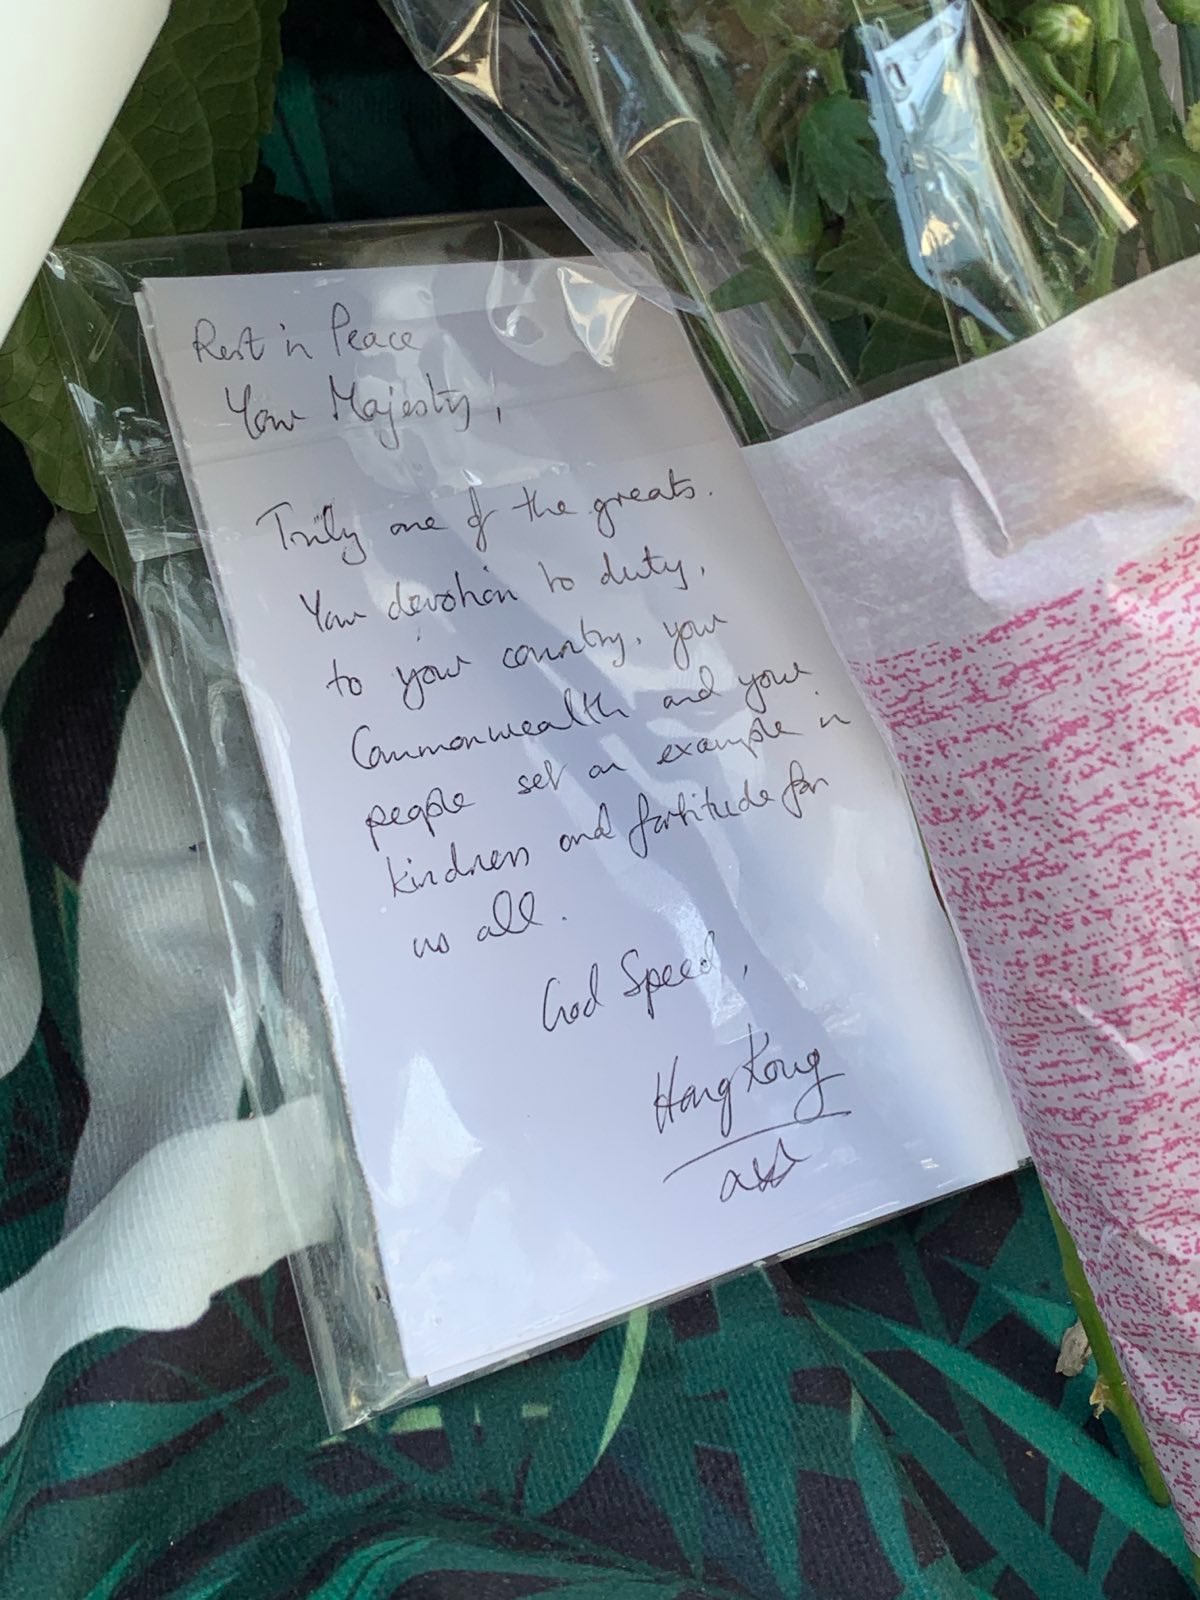 Rest in Peace
Your Majesty,
Truly one of the greats.
Your devotion to duty,
to your country, your
Commonwealth and your
people set an example in
kindness and fortitude for
us all.
God Speed,
Hong Kong